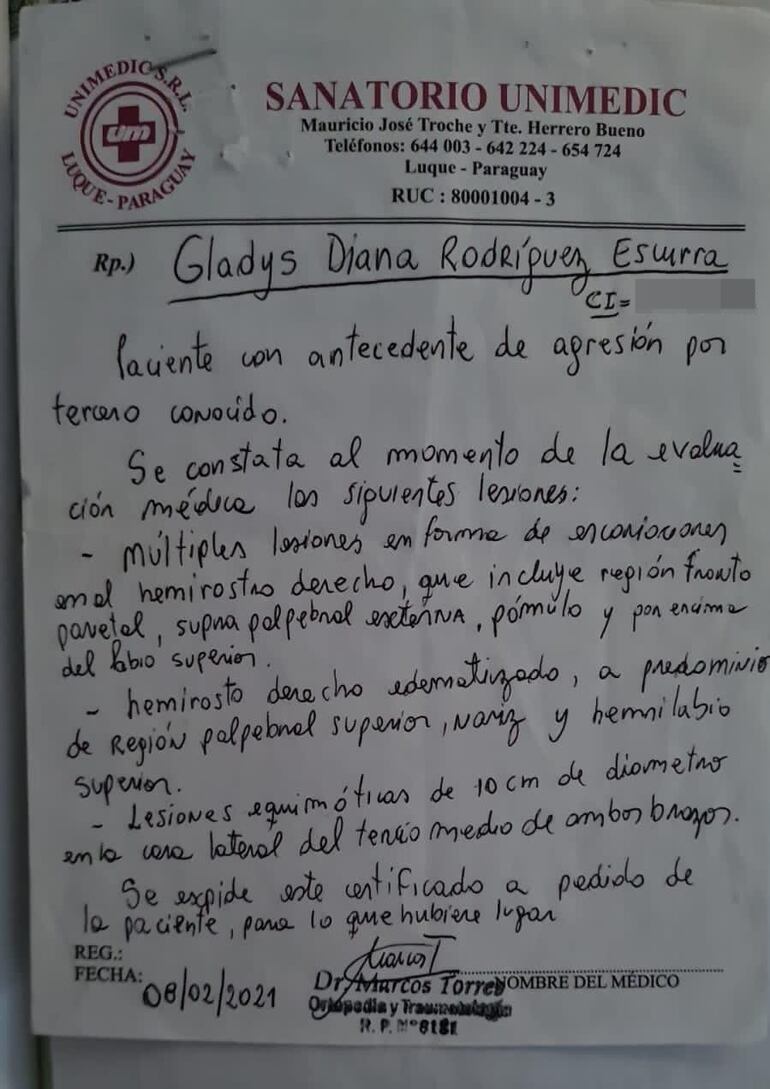 UNIMEDIC S.R.L.
um
LUQUE - PARAGUAY
SANATORIO UNIMEDIC
Mauricio José Troche y Tte. Herrero Bueno
Teléfonos: 644 003 - 642 224 - 654 724
Luque - Paraguay
RUC : 80001004 - 3
Rp.) Gladys Diana Rodríguez Escurra
CI=
Paciente con antecedente de agresión por
tercero conocido.
Se constata al momento de la evalua
ción médica las siguientes lesiones:
- múltiples lesiones en forma de escoriaciones
en el hemirostro derecho, que incluye región fronto
parietal, supra palpebral externa, pómulo y por encima
del labio superior.
- hemirosto derecho edematizado, a predominio
de Región palpebral superior, nariz y hemilabio
superior.
- Lesiones equimóticas de 10 cm de diametro
en la cara lateral del tercio medio de ambos brazos.
Se expide este certificado a pedido de
la paciente, para lo que hubiere lugar
REG.:
FECHA: 08/02/2021
Marcos T
Dr. Marcos Torres NOMBRE DEL MÉDICO
Ortopedia y Traumatología
R. P. Nº 8181